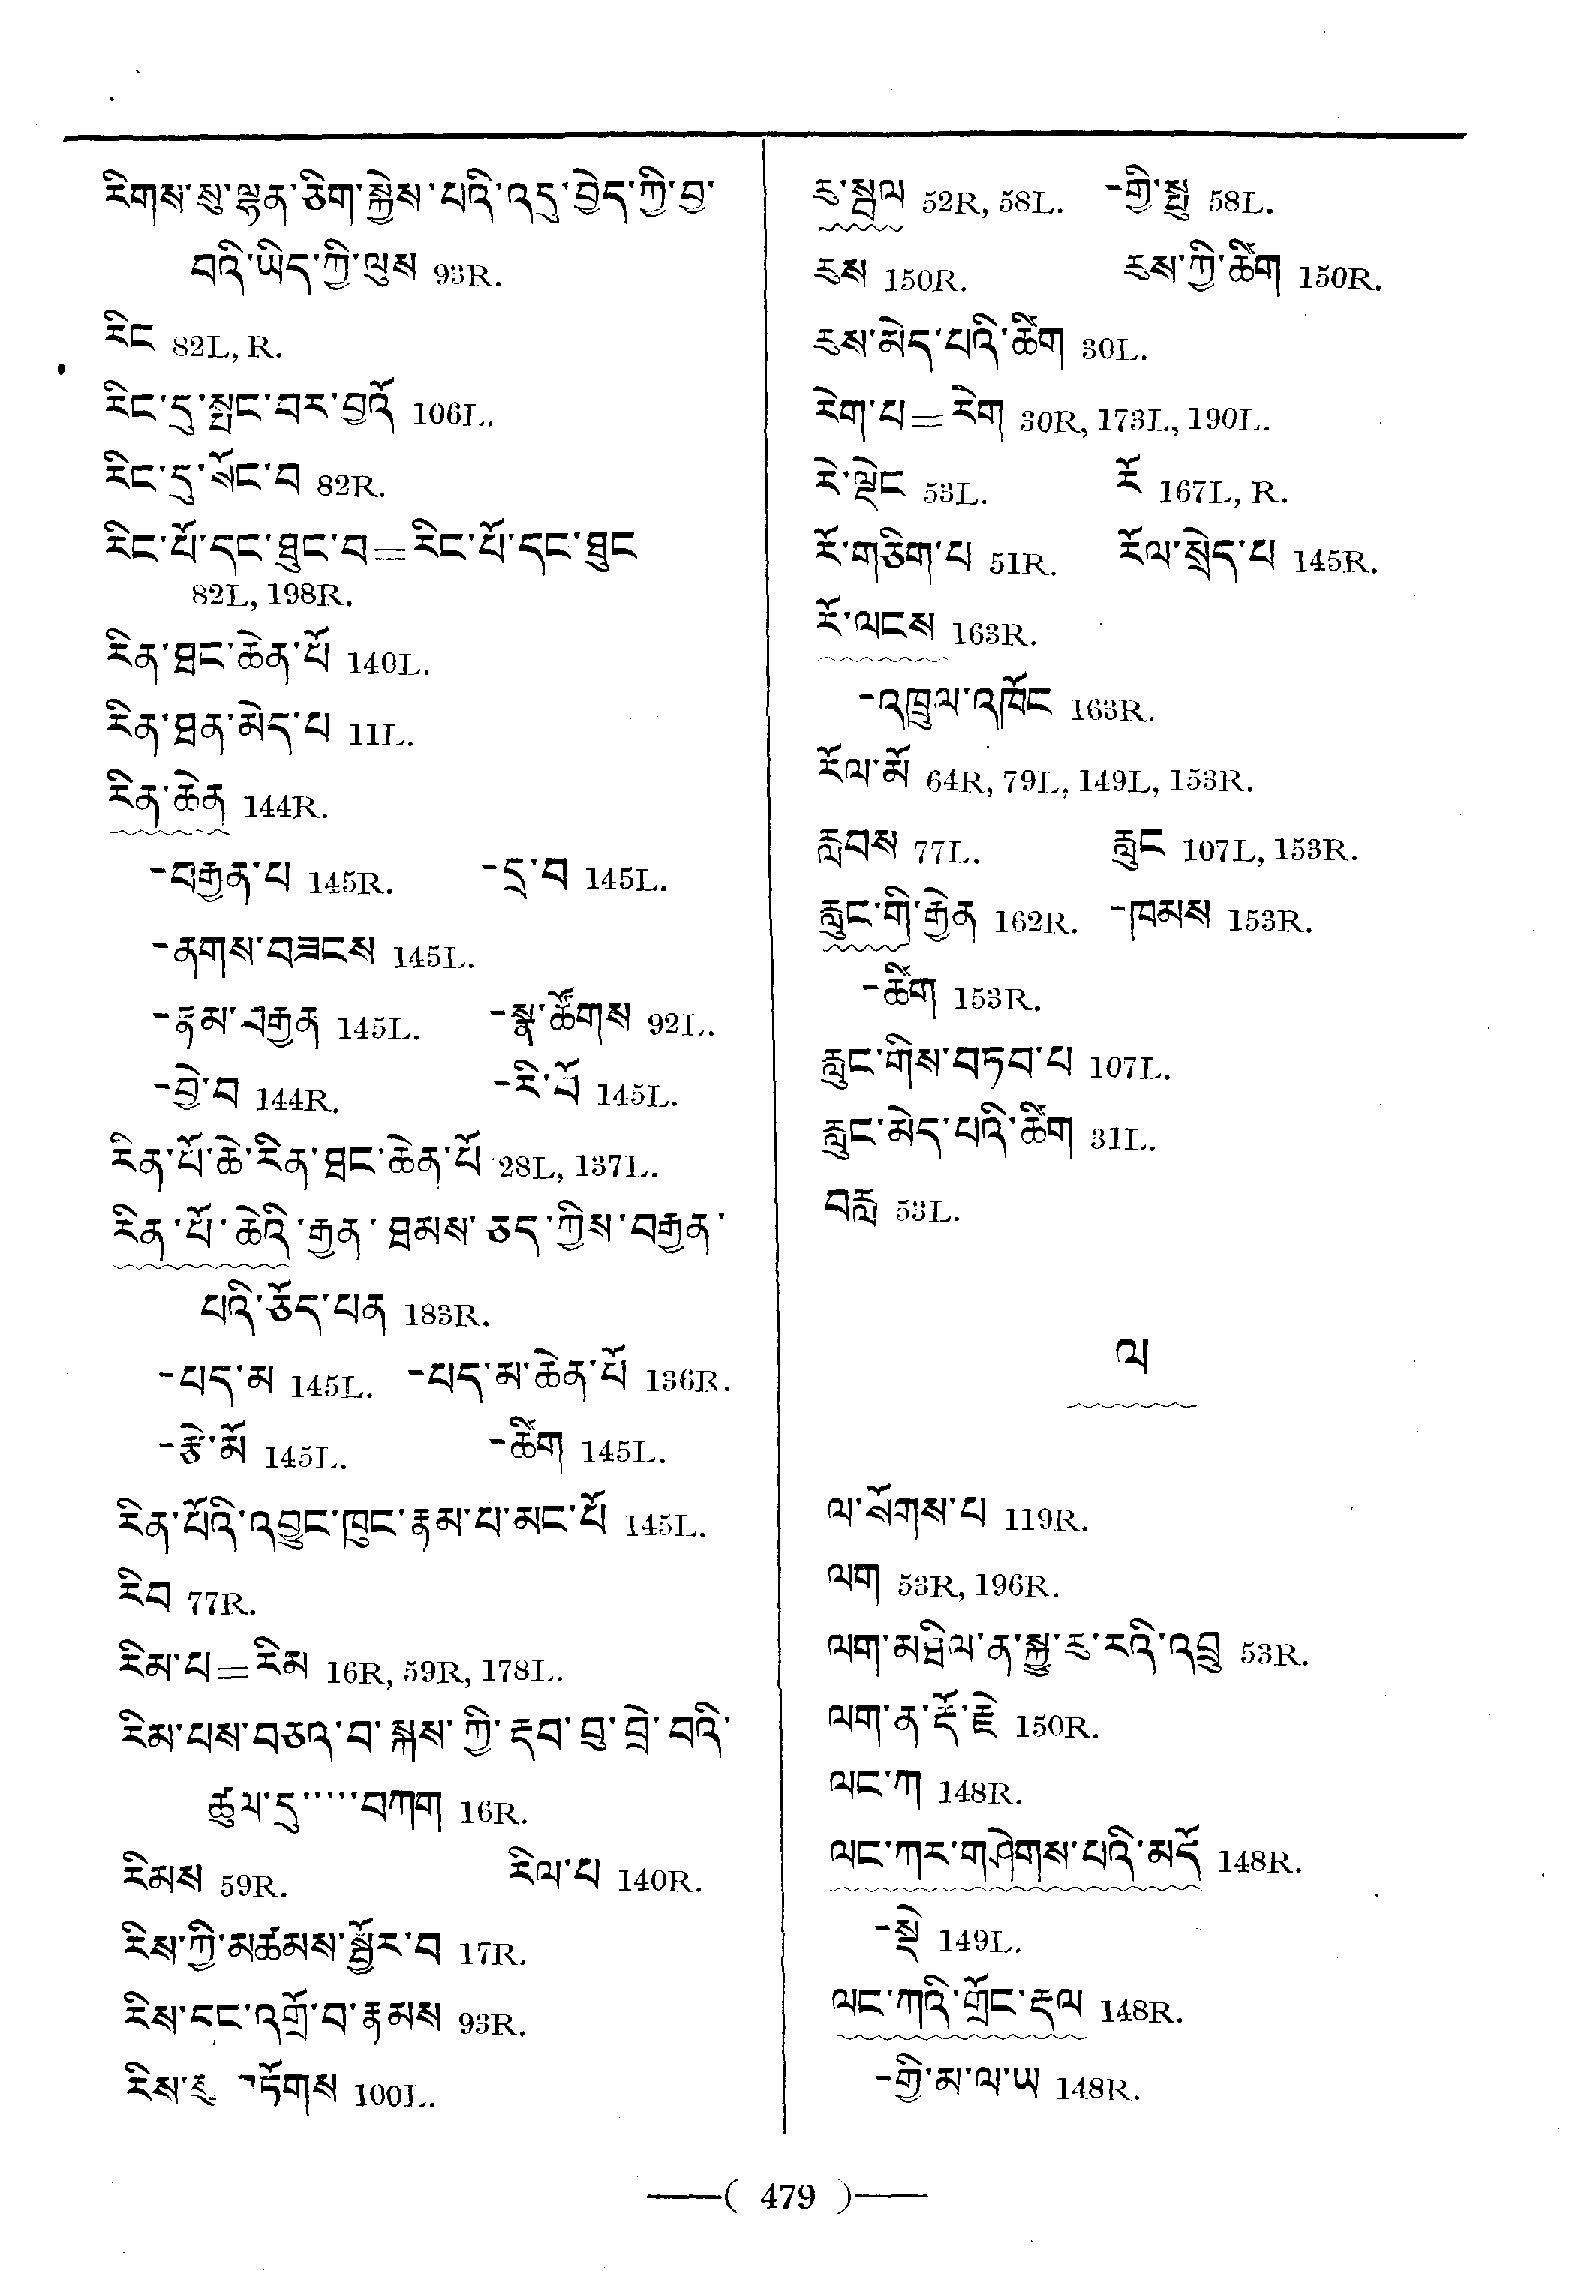 རིགས་སུ་ལྷན་ཅིག་སྐྱེས་པའི་འདུ་བྱེད་ཀྱི་བྱ་
བའི་ཡིད་ཀྱི་ལུས 93R.
རིང 82L, R.
རིང་དུ་སྤང་བར་བྱའོ 106L.
རིང་དུ་སོང་བ 82R.
རིང་པོ་དང་ཐུང་བ=རིང་པོ་དང་ཐུང
82L, 198R.
རིན་ཐང་ཆེན་པོ 140L.
རིན་ཐན་མེད་པ 11L.
རིན་ཆེན 144R.
-བརྒྱན་པ 145R. -དྲ་བ 145L.
-ནགས་བཟངས 145L.
-རྣམ་བརྒྱན 145L. -སྣ་ཚོགས 92L.
-བྱེ་བ 144R. -རི་པོ 145L.
རིན་པོ་ཆེ་རིན་ཐང་ཆེན་པོ 28L, 137L.
རིན་པོ་ཆེའི་རྒྱན་ཐམས་ཅད་ཀྱིས་བརྒྱན་
པའི་ཅོད་པན 183R.
-པད་མ 145L. -པད་མ་ཆེན་པོ 136R.
-རྩེ་མོ 145L. -ཚིག 145L.
རིན་པོའི་འབྱུང་ཁུང་རྣམ་པ་མང་པོ 145L.
རིབ 77R.
རིམ་པ=རིམ 16R, 59R, 178L.
རིམ་པས་བཅའ་བ་སྐས་ཀྱི་རྡབ་བུ་བྲེ་བའི་
ཚུལ་དུ་་་་་བཀག 16R.
རིམས 59R. རིལ་པ 140R.
རིས་ཀྱི་མཚམས་སྦྱོར་བ 17R.
རིས་ངང་འགྲོ་བ་རྣམས 93R.
རིས་ -ཏོགས 100L.
རུ་སྦལ 52R, 58L. -གྱི་སྤུ 58L.
རུས 150R. རུས་ཀྱི་ཚིག 150R.
རུས་མེད་པའི་ཚིག 30L.
རེག་པ=རེག 30R, 173L, 190L.
རེ་ལྡེང 53L. རོ 167L, R.
རོ་གཅིག་པ 51R. རོལ་སྲེད་པ 145R.
རོ་ལངས 163R.
-འཁྲུལ་འཁོང 163R.
རོལ་མོ 64R, 79L, 149L, 153R.
རླབས 77L. རླུང 107L, 153R.
རླུང་གི་རྒྱེན 162R. -ཁམས 153R.
-ཚིག 153R.
རླུང་གིས་བཏབ་པ 107L.
རླུང་མེད་པའི་ཚིག 31L.
བརླ 53L.
ལ
ལ་སོགས་པ 119R.
ལག 53R, 196R.
ལག་མཐིལ་ན་སྐྱུ་རུ་རའི་འབྲུ 53R.
ལག་ན་རྡོ་རྗེ 150R.
ལང་ཀ 148R.
ལང་ཀར་གཤེགས་པའི་མདོ 148R.
-སྡེ 149L.
ལང་ཀའི་གྲོང་རྡལ 148R.
-གྱི་མ་ལ་ཡ 148R.
( 479 )